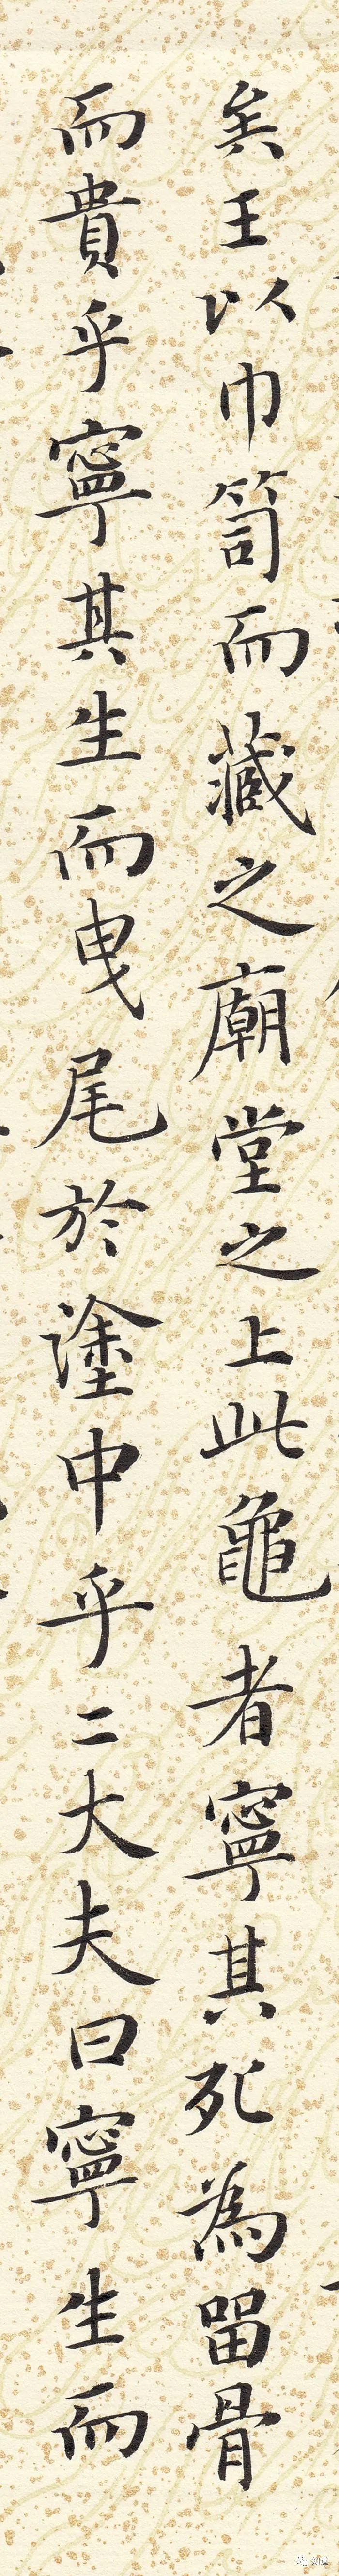 矣王以巾笥而藏之廟堂之上此龜者寧其死為留骨
而貴乎寧其生而曳尾於塗中乎二大夫曰寧生而